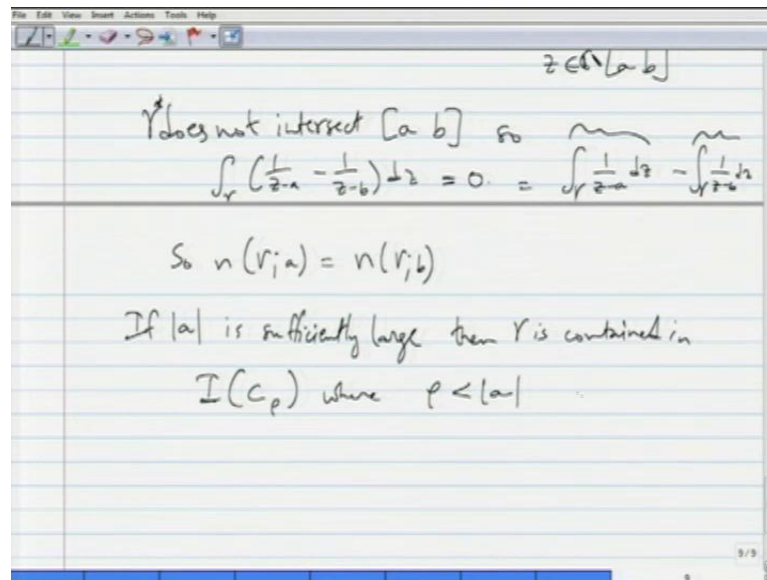 File Edit View Insert Actions Tools Help
z ∈ ℂ \ [a b]
γ* does not intersect [a b] so
∫_γ (1/(z-a) - 1/(z-b)) dz = 0. = ∫_γ 1/(z-a) dz - ∫_γ 1/(z-b) dz
So n(γ; a) = n(γ; b)
If |a| is sufficiently large then γ is contained in
I(C_ρ) where ρ < |a|
9/9
9